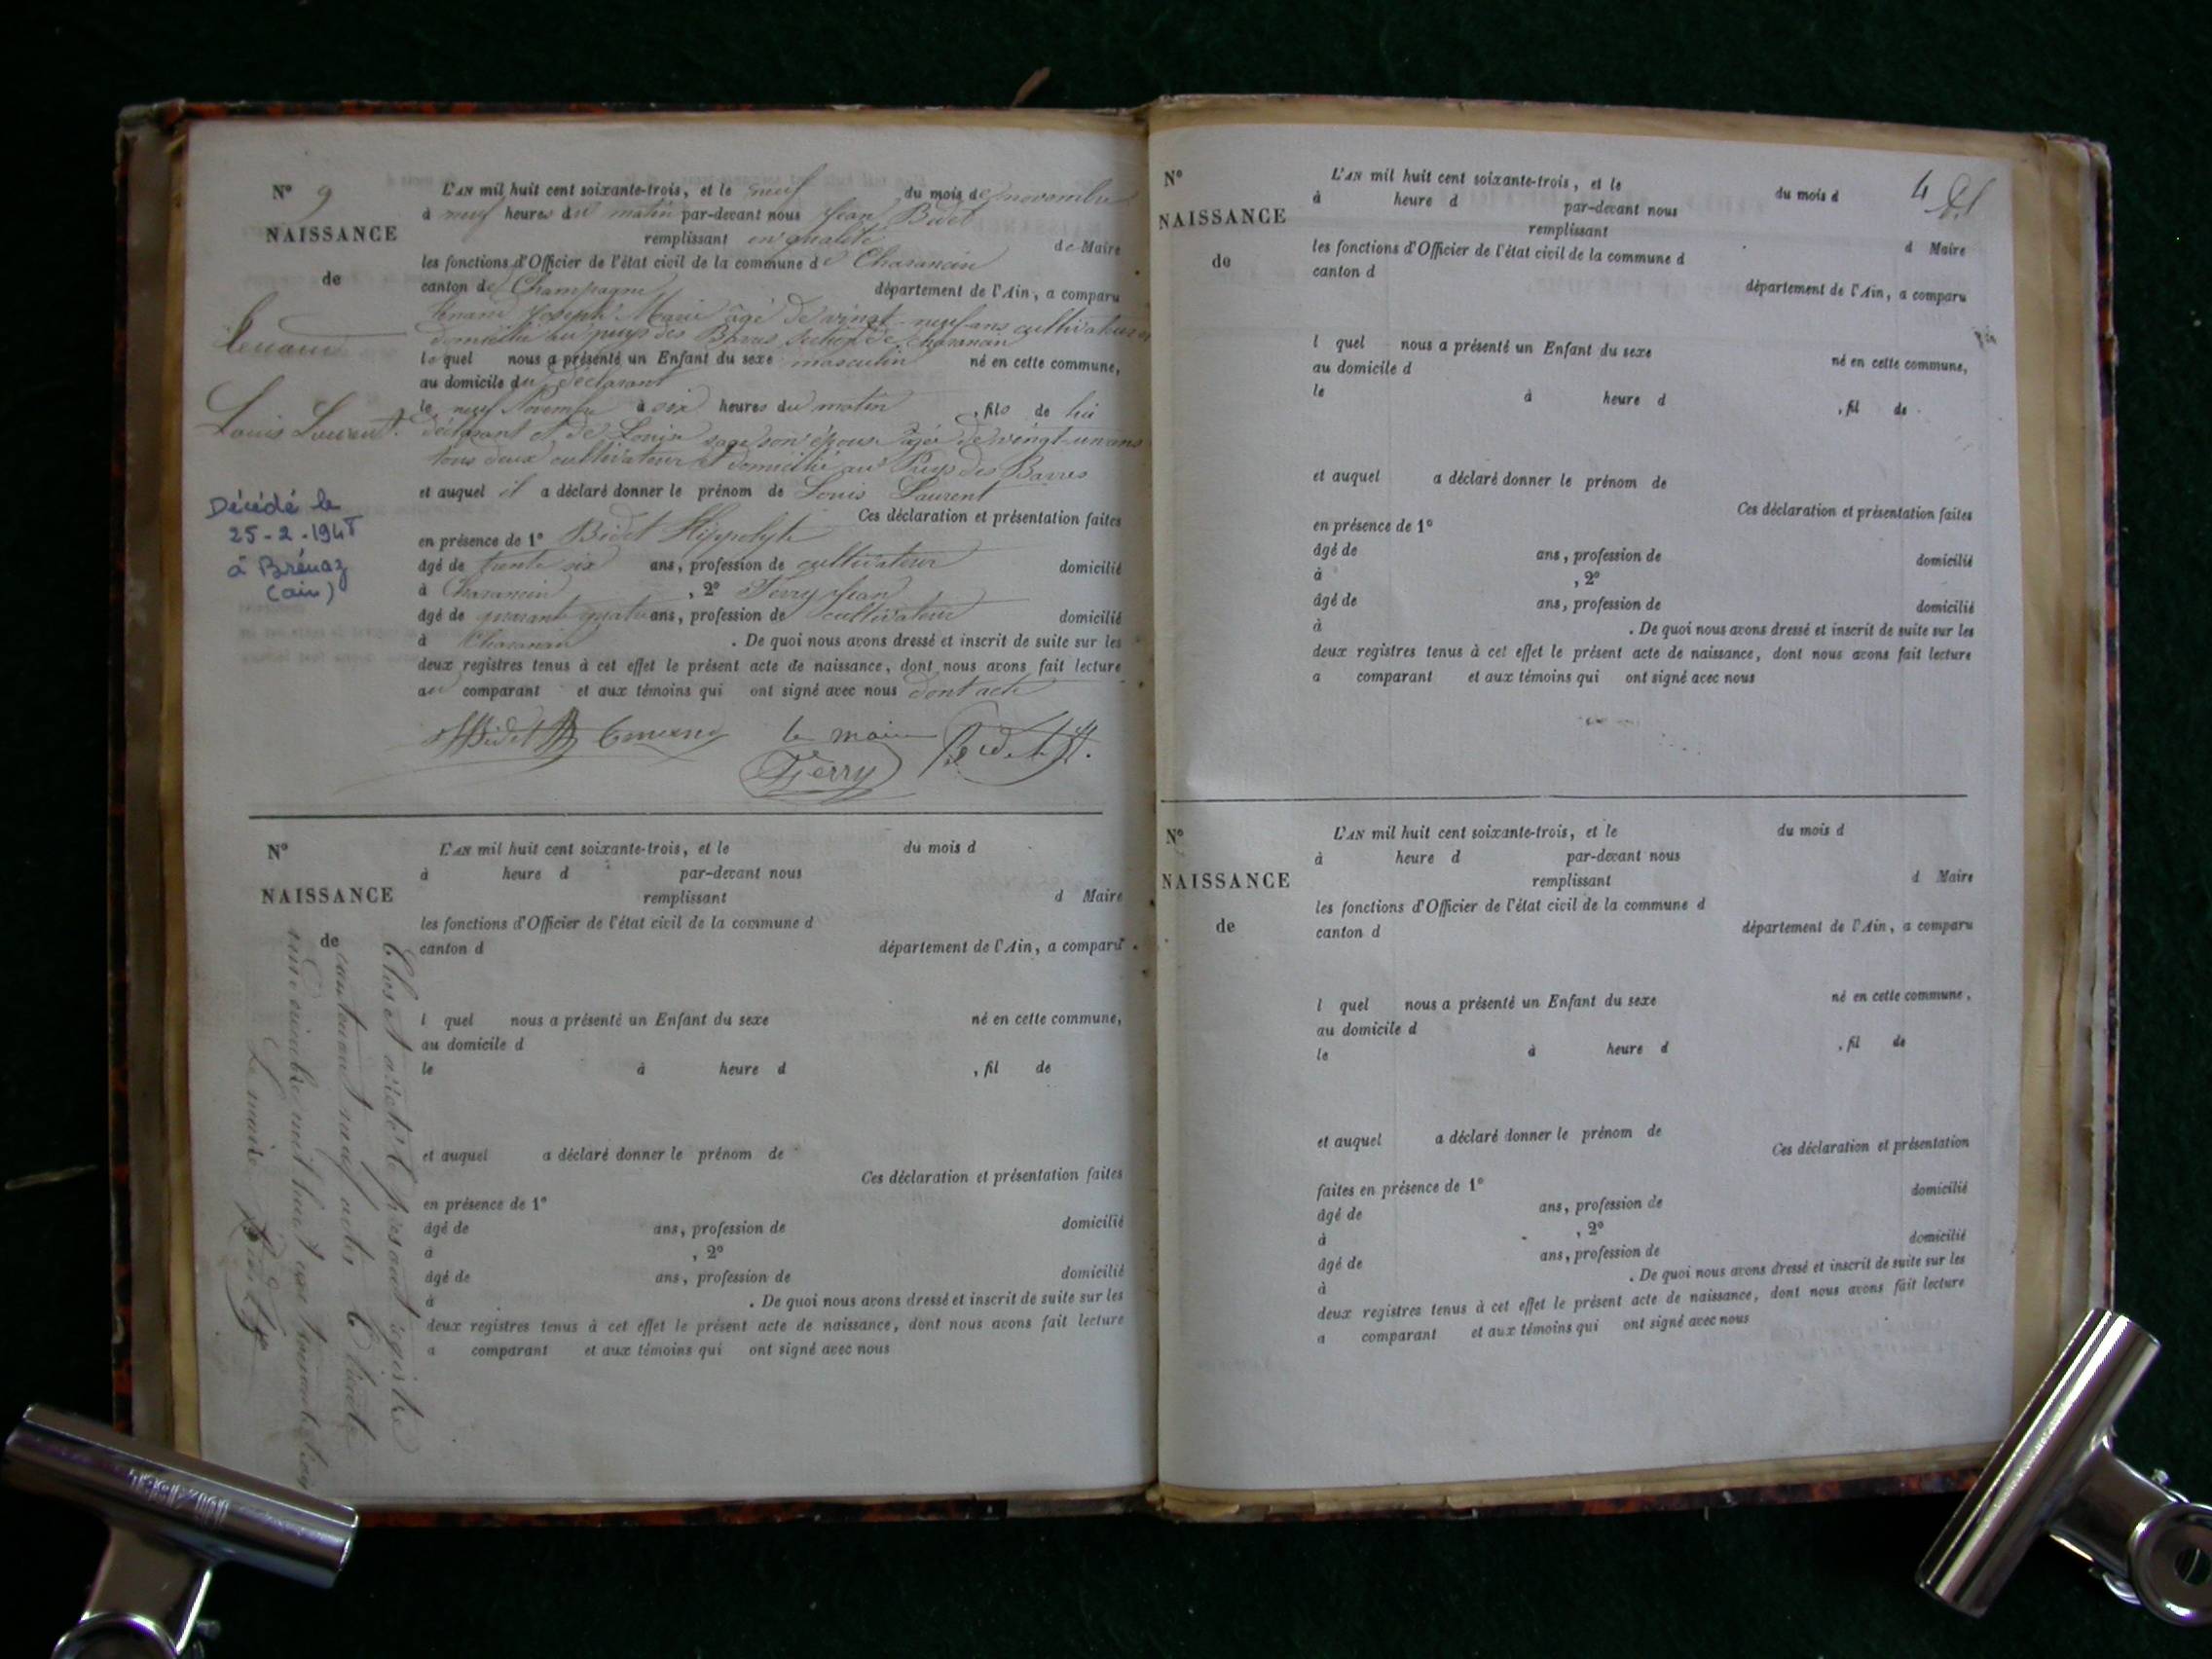 N° 9
NAISSANCE
de
Louis Laurent.
Décédé le
25-2-1948
à Brénaz
(ain)
L'AN mil huit cent soixante-trois, et le neuf du mois de novembre
à neuf heures du matin par-devant nous Jean Bidet
remplissant en qualité de Maire
les fonctions d'Officier de l'état civil de la commune de Charancin
canton de Champagne département de l'Ain, a comparu
Joseph Marie âgé de vingt-neuf ans cultivateur
domicilié au puys des Barres Section de Charancin
le quel nous a présenté un Enfant du sexe masculin né en cette commune,
au domicile du déclarant
le neuf Novembre à six heures du matin, fils de lui
déclarant et de Louise son épouse âgée de vingt-un ans
tous deux cultivateur et domicilié au Puys des Barres
et auquel il a déclaré donner le prénom de Louis Laurent
Ces déclaration et présentation faites
en présence de 1° Bidet Hippolyte
âgé de trente six ans, profession de cultivateur domicilié
à Charancin, 2° Ferry Jean
âgé de quarant quatre ans, profession de cultivateur domicilié
à Charancin. De quoi nous avons dressé et inscrit de suite sur les
deux registres tenus à cet effet le présent acte de naissance, dont nous avons fait lecture
au comparant et aux témoins qui ont signé avec nous dont acte
Bidet le maire Bidet
Ferry
N°
NAISSANCE
de
L'AN mil huit cent soixante-trois, et le du mois d
à heure d par-devant nous
remplissant d Maire
les fonctions d'Officier de l'état civil de la commune d
canton d département de l'Ain, a comparu
l quel nous a présenté un Enfant du sexe né en cette commune,
au domicile d
le à heure d , fil de
et auquel a déclaré donner le prénom de
Ces déclaration et présentation faites
en présence de 1°
âgé de ans, profession de domicilié
à , 2°
âgé de ans, profession de domicilié
à . De quoi nous avons dressé et inscrit de suite sur les
deux registres tenus à cet effet le présent acte de naissance, dont nous avons fait lecture
a comparant et aux témoins qui ont signé avec nous
Clos et arrêté le présent registre
contenant neuf actes
mil huit cent soixante trois
Le maire Bidet
4
N°
NAISSANCE
de
L'AN mil huit cent soixante-trois, et le du mois d
à heure d par-devant nous
remplissant d Maire
les fonctions d'Officier de l'état civil de la commune d
canton d département de l'Ain, a comparu
l quel nous a présenté un Enfant du sexe né en cette commune,
au domicile d
le à heure d , fil de
et auquel a déclaré donner le prénom de
Ces déclaration et présentation faites
en présence de 1°
âgé de ans, profession de domicilié
à , 2°
âgé de ans, profession de domicilié
à . De quoi nous avons dressé et inscrit de suite sur les
deux registres tenus à cet effet le présent acte de naissance, dont nous avons fait lecture
a comparant et aux témoins qui ont signé avec nous
N°
NAISSANCE
de
L'AN mil huit cent soixante-trois, et le du mois d
à heure d par-devant nous
remplissant d Maire
les fonctions d'Officier de l'état civil de la commune d
canton d département de l'Ain, a comparu
l quel nous a présenté un Enfant du sexe né en cette commune,
au domicile d
le à heure d , fil de
et auquel a déclaré donner le prénom de
Ces déclaration et présentation
faites en présence de 1°
âgé de ans, profession de domicilié
à , 2°
âgé de ans, profession de domicilié
à . De quoi nous avons dressé et inscrit de suite sur les
deux registres tenus à cet effet le présent acte de naissance, dont nous avons fait lecture
a comparant et aux témoins qui ont signé avec nous